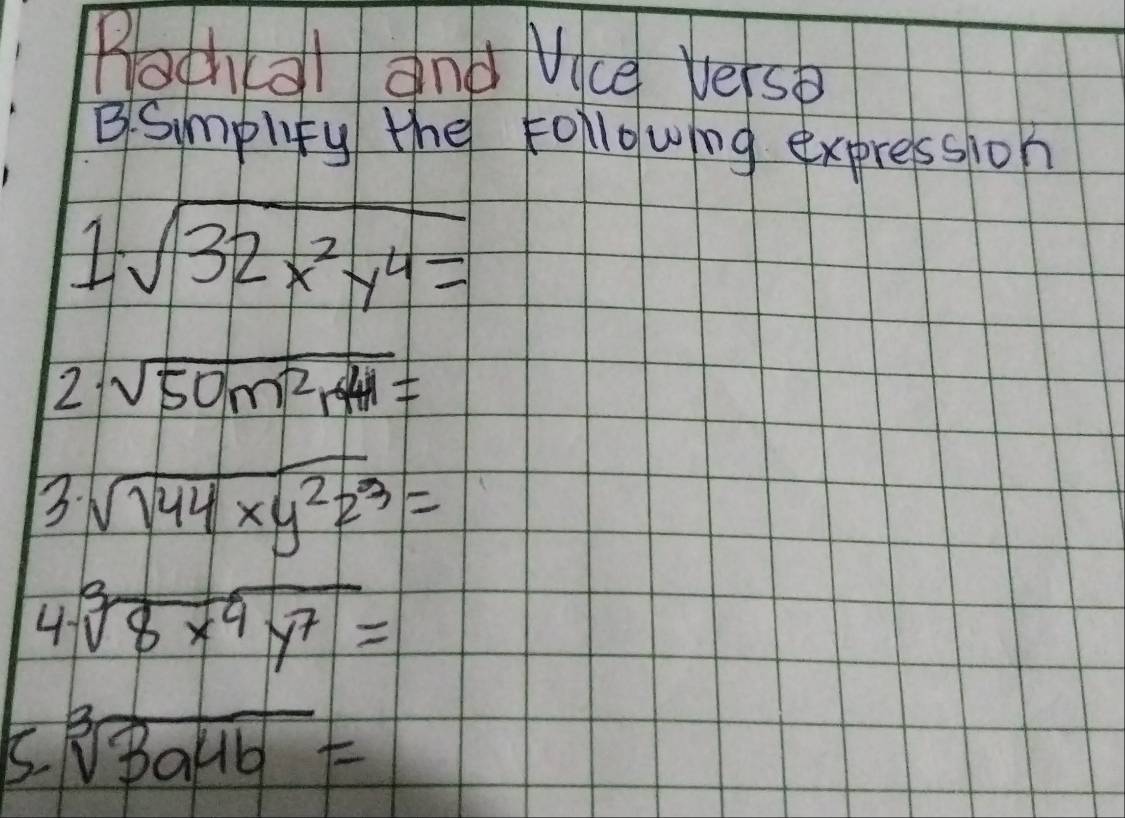 Radical and Vice Versa
B. Simplify the Following expression
1. √32x²y⁴ =
2. √50m² =
3. √144xy²z³ =
4. ∛8x⁹y⁷ =
5. ∛3a4b =